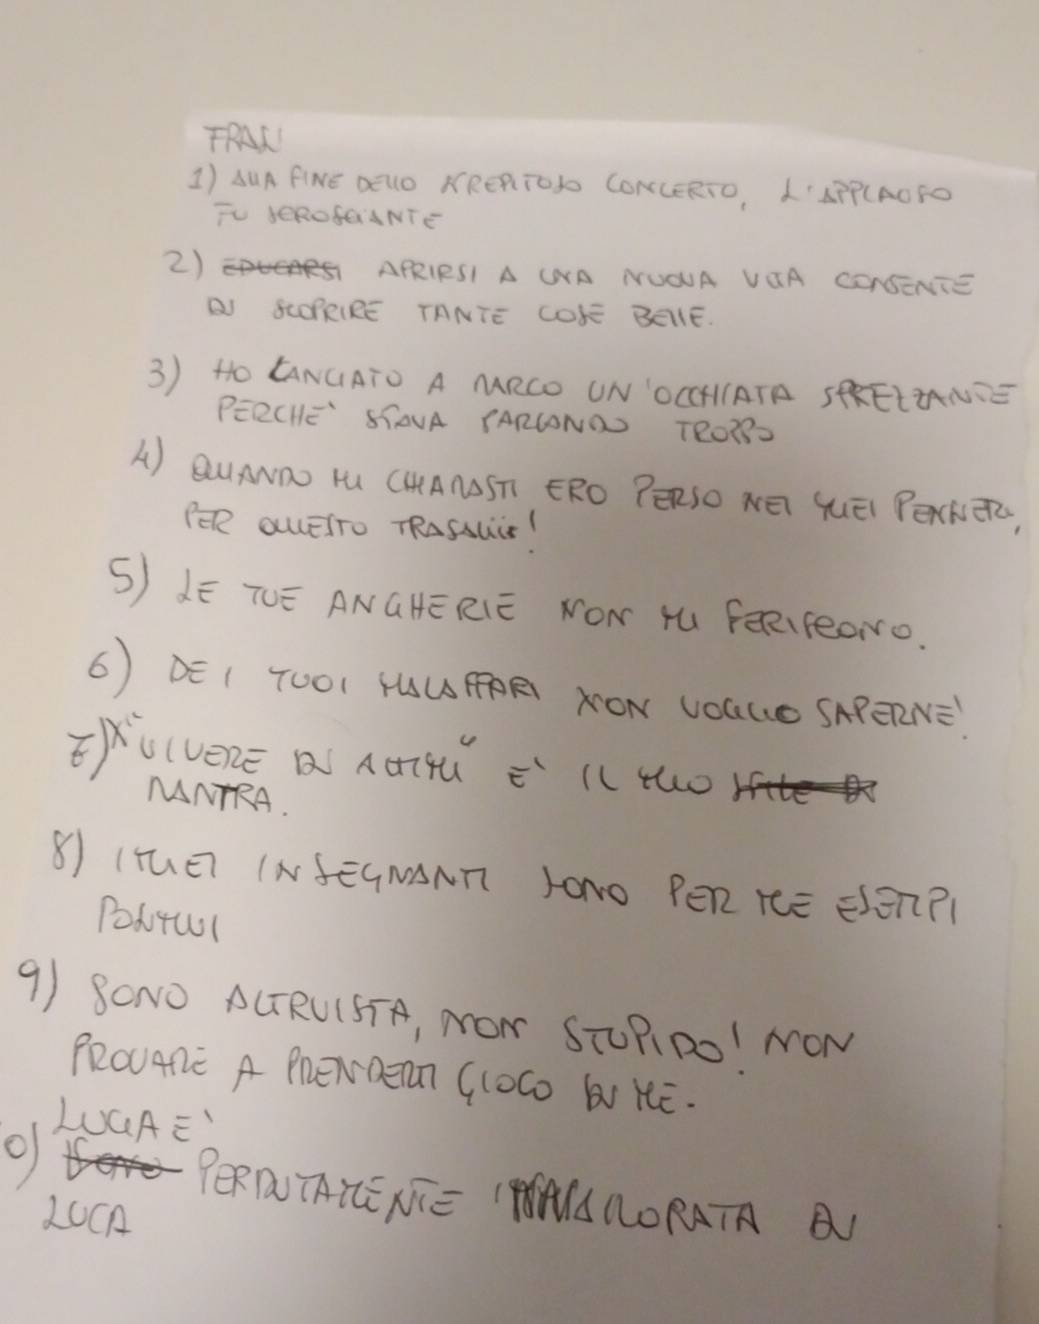 FRAN
1) ALLA FINE DELLO STREPITOSO CONCERTO, L'APPLAUSO
FU SCROSCIANTE
2) EDUCARSI APRIRSI A UNA NUOVA VITA CONSENTE
DI SCOPRIRE TANTE COSE BELLE.
3) HO LANCIATO A MARCO UN'OCCHIATA SPREZZANTE
PERCHE' STAVA PARLANDO TROPPO
4) QUANDO MI CHIAMASTI ERO PERSO NEI MIEI PENSIERI,
PER QUESTO TRASALII!
5) LE TUE ANGHERIE NON MI FERISCONO.
6) DEI TUOI MALAFFARI NON VOGLIO SAPERNE!
7) "VIVERE DI ATTIMI" E' IL MIO
MANTRA.
8) I MIEI INSEGNANTI SONO PER ME ESEMPI
POSITIVI
9) SONO ALTRUISTA, NON STUPIDO! NON
PROVARE A PRENDERTI GIOCO DI ME.
LUCIA E'
0) PERDUTAMENTE INNAMORATA DI
LUCA